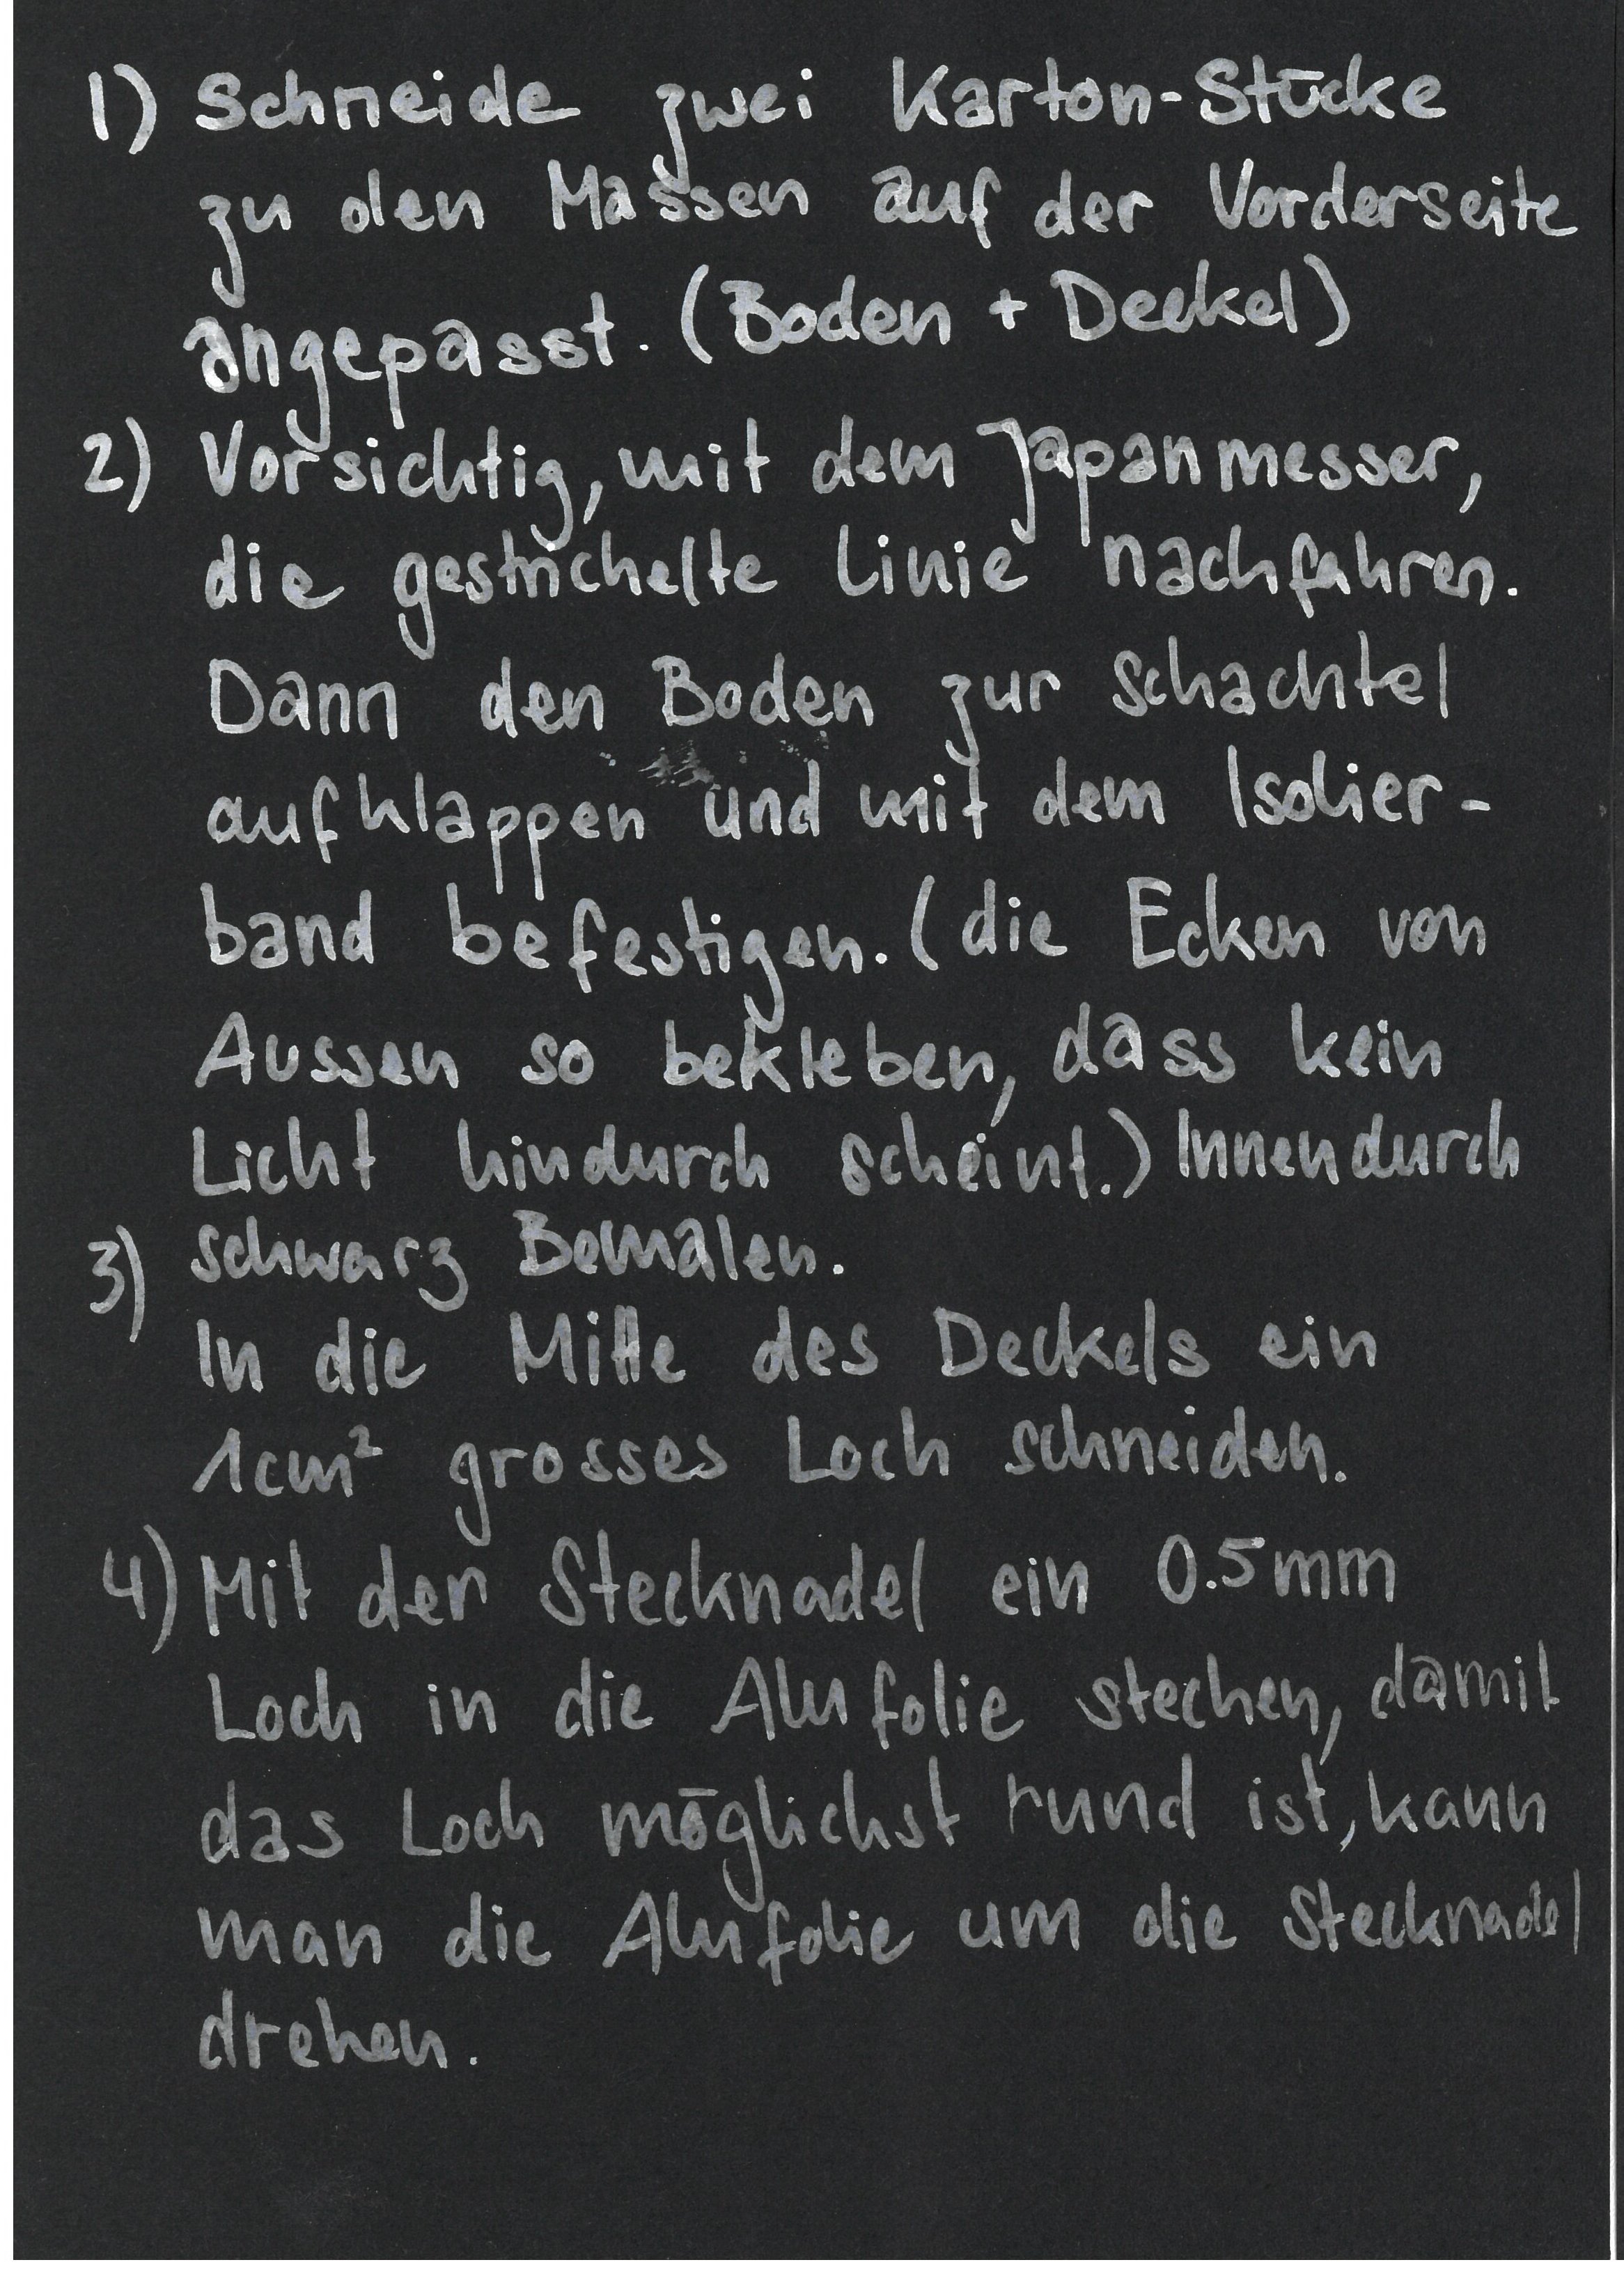 1) Schneide zwei Karton-Stücke
zu den Massen auf der Vorderseite
angepasst. (Boden + Deckel)
2) Vorsichtig, mit dem Japanmesser,
die gestrichelte Linie nachfahren.
Dann den Boden zur Schachtel
aufklappen und mit dem Isolier-
band befestigen. (die Ecken von
Aussen so bekleben, dass kein
Licht hindurch scheint.) Innendurch
3) schwarz Bemalen.
In die Mitte des Deckels ein
1cm² grosses Loch schneiden.
4) Mit der Stecknadel ein 0.5mm
Loch in die Alufolie stechen, damit
das Loch möglichst rund ist, kann
man die Alufolie um die Stecknadel
drehen.